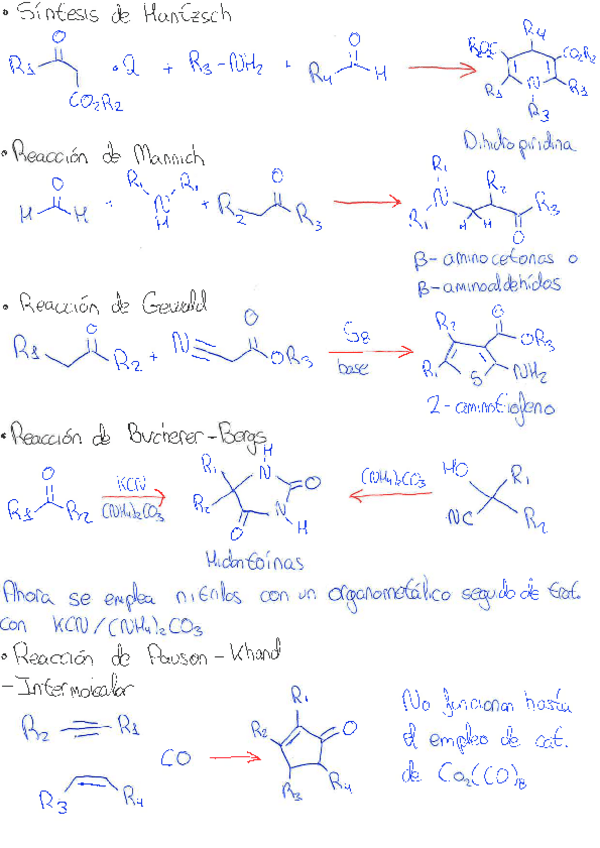 • Síntesis de Hantzsch
R1 CO2R2 · 2 + R3-NH2 + R4 O H → R4 R2O2C CO2R2 R1 N R1 R3
O
Dihidropiridina
• Reacción de Mannich
H O H + R1 N R1 H + R2 O R3 → R1 N R1 H H R2 O R3
β-aminocetonas o
β-aminoaldehidos
• Reacción de Gewald
R1 O R2 + N O OR3 S8 base → R2 O OR3 R1 S NH2
2-aminotiofeno
• Reacción de Bucherer-Bergs
R1 O R2 KCN (NH4)2CO3 → R1 R2 H N O O N H ← (NH4)2CO3 HO R1 NC R2
Hidantoínas
Ahora se emplea nitrilos con un organometálico seguido de trat.
con KCN/(NH4)2CO3
• Reacción de Pauson-Khand
-Intermolecular
R2 R1
R3 R4 CO → R1 R2 O R3 R4
No funcionan hasta
el empleo de cat.
de Co2(CO)8